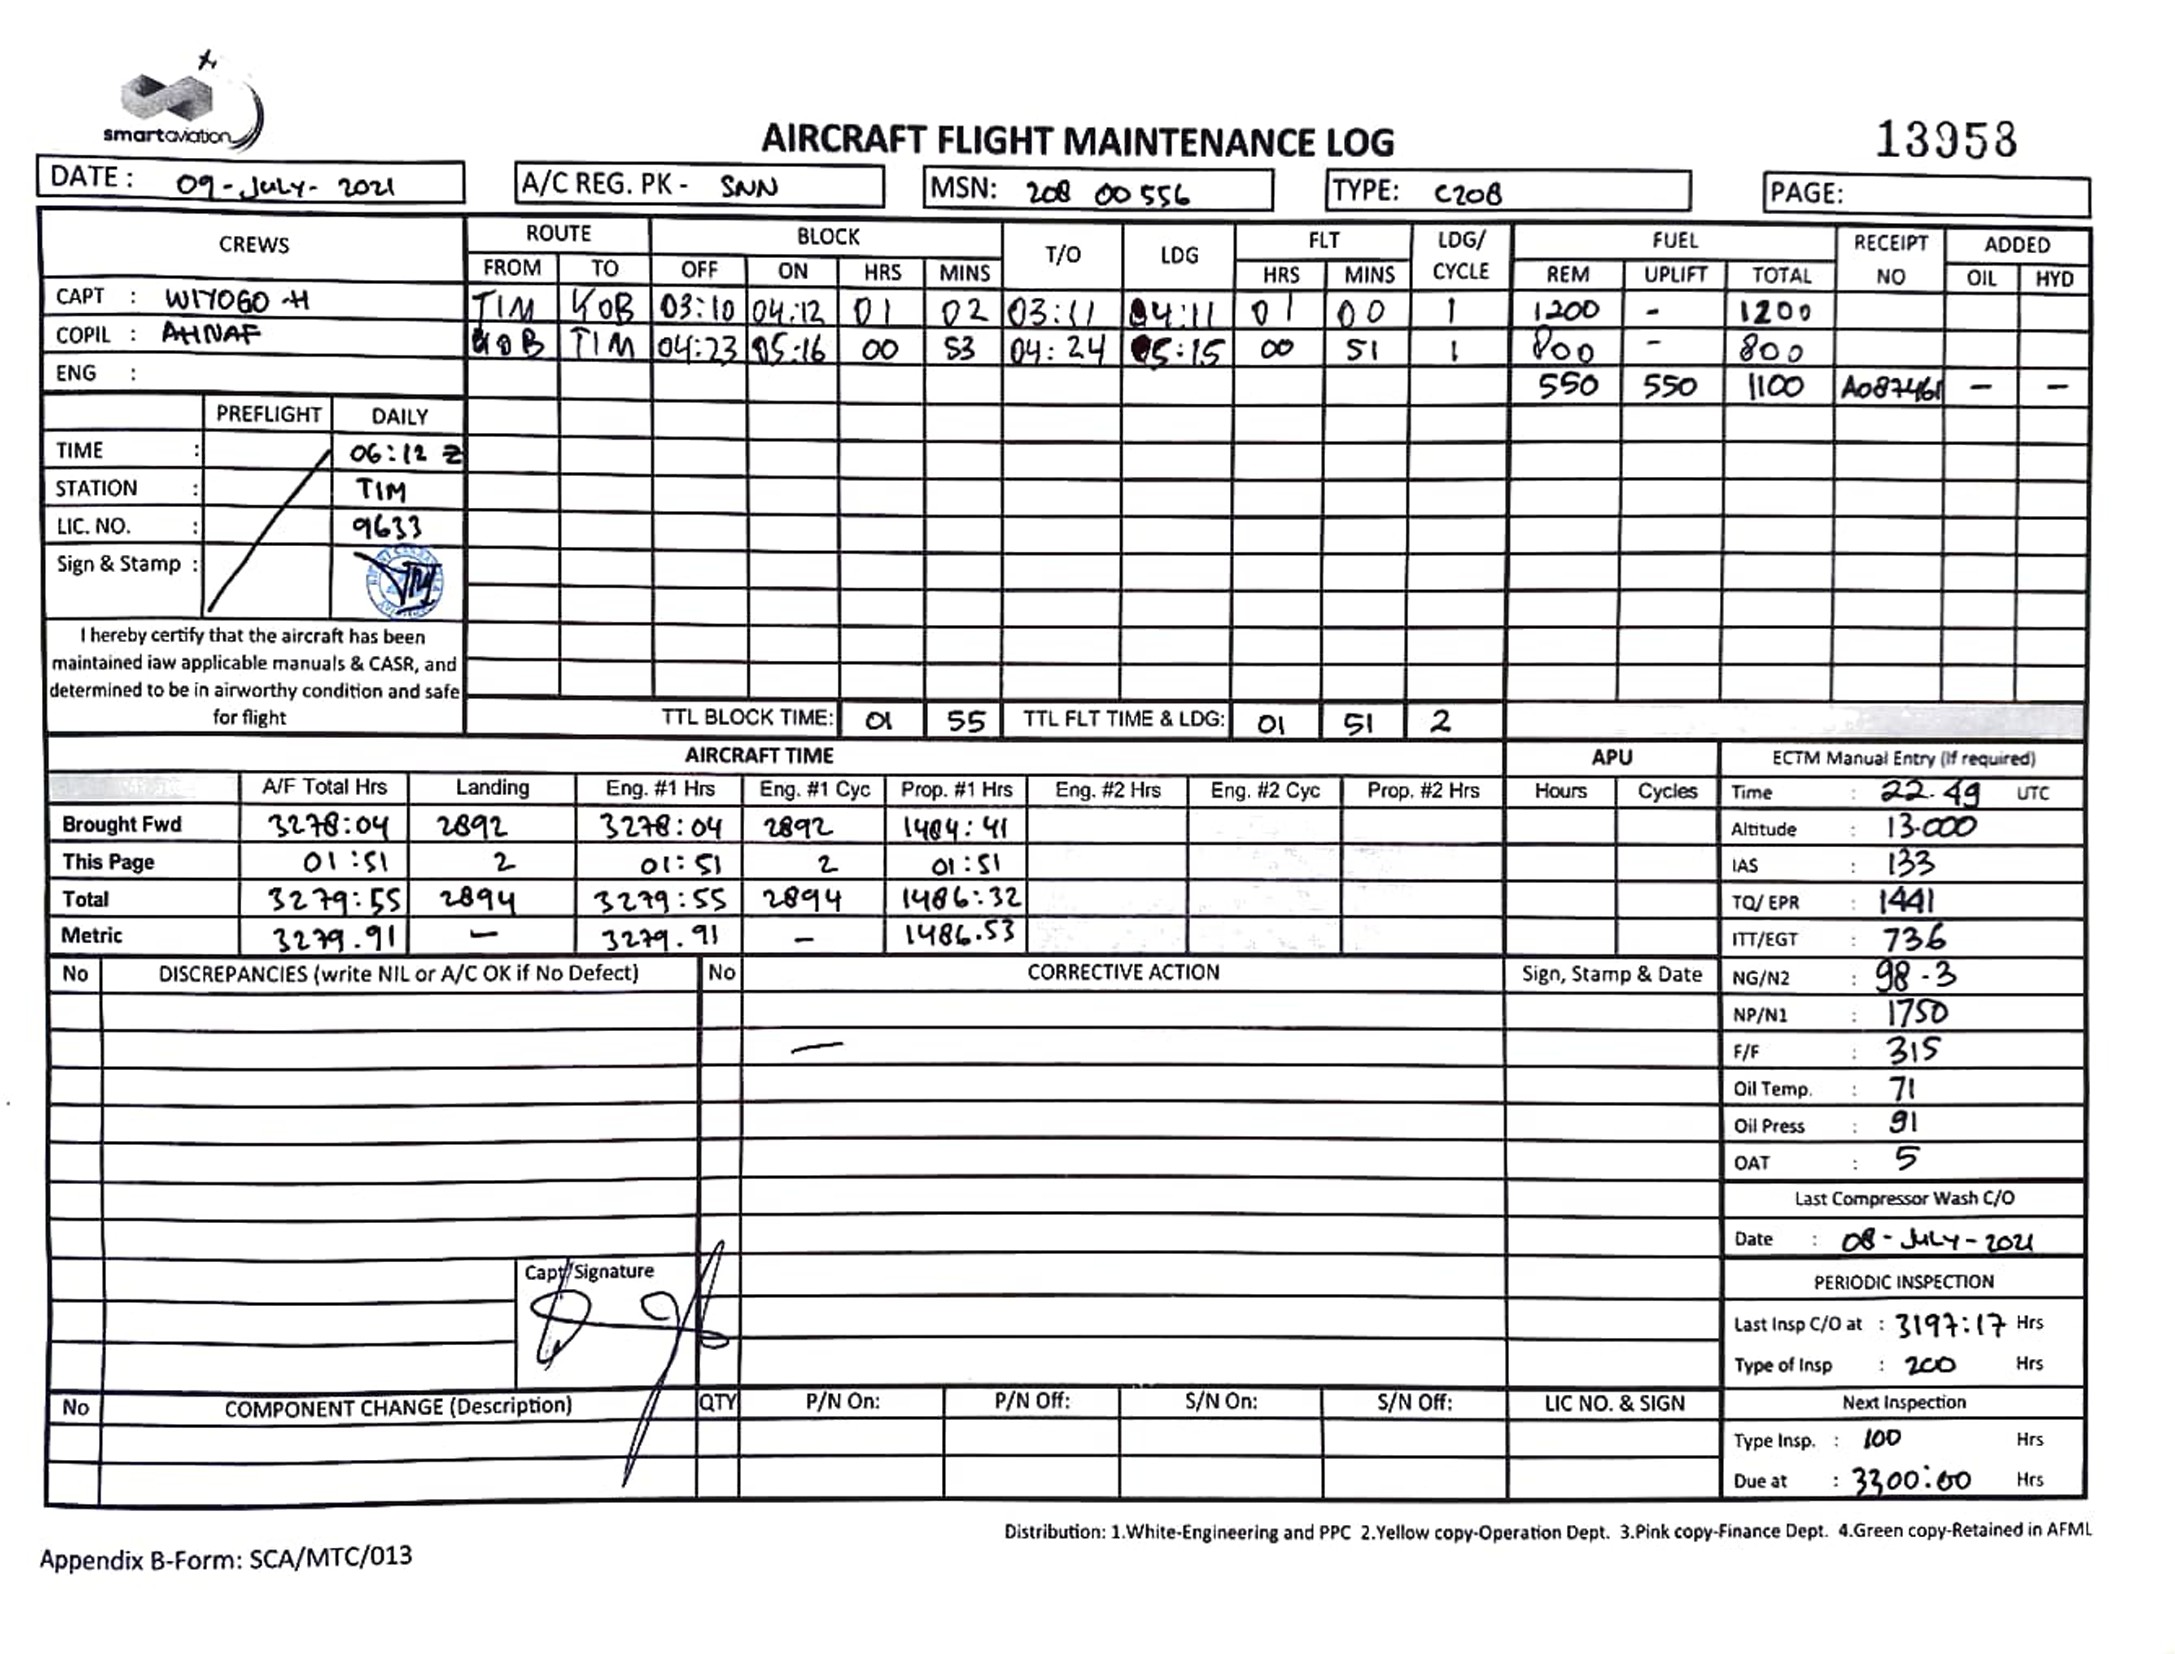 smartaviation
AIRCRAFT FLIGHT MAINTENANCE LOG
13958
DATE : 09-July-2021
A/C REG. PK - SNN
MSN: 208 00556
TYPE: C208
PAGE:
CREWS ROUTE BLOCK T/O LDG FLT LDG/ CYCLE FUEL RECEIPT NO ADDED
FROM TO OFF ON HRS MINS HRS MINS REM UPLIFT TOTAL OIL HYD
CAPT : WIYOGO-H TIM KOB 03:10 04:12 01 02 03:11 04:11 01 00 1 1200 - 1200
COPIL : AHNAF KOB TIM 04:23 05:16 00 53 04:24 05:15 00 51 1 800 - 800
ENG : 550 550 1100 A087461 - -
PREFLIGHT DAILY
TIME : 06:12 Z
STATION : TIM
LIC. NO. : 9633
Sign & Stamp :
I hereby certify that the aircraft has been
maintained iaw applicable manuals & CASR, and
determined to be in airworthy condition and safe
for flight
TTL BLOCK TIME: 01 55 TTL FLT TIME & LDG: 01 51 2
AIRCRAFT TIME APU
A/F Total Hrs Landing Eng. #1 Hrs Eng. #1 Cyc Prop. #1 Hrs Eng. #2 Hrs Eng. #2 Cyc Prop. #2 Hrs Hours Cycles
Brought Fwd 3278:04 2892 3278:04 2892 1484:41
This Page 01:51 2 01:51 2 01:51
Total 3279:55 2894 3279:55 2894 1486:32
Metric 3279.91 - 3279.91 - 1486.53
No DISCREPANCIES (write NIL or A/C OK if No Defect) No CORRECTIVE ACTION Sign, Stamp & Date
Capt/Signature
No COMPONENT CHANGE (Description) QTY P/N On: P/N Off: S/N On: S/N Off: LIC NO. & SIGN
ECTM Manual Entry (If required)
Time : 22.49 UTC
Altitude : 13.000
IAS : 133
TQ/ EPR : 1441
ITT/EGT : 736
NG/N2 : 98-3
NP/N1 : 1750
F/F : 315
Oil Temp. : 71
Oil Press : 91
OAT : 5
Last Compressor Wash C/O
Date : 08-July-2021
PERIODIC INSPECTION
Last Insp C/O at : 3197:17 Hrs
Type of Insp : 200 Hrs
Next Inspection
Type Insp. : 100 Hrs
Due at : 3300:00 Hrs
Distribution: 1.White-Engineering and PPC 2.Yellow copy-Operation Dept. 3.Pink copy-Finance Dept. 4.Green copy-Retained in AFML
Appendix B-Form: SCA/MTC/013